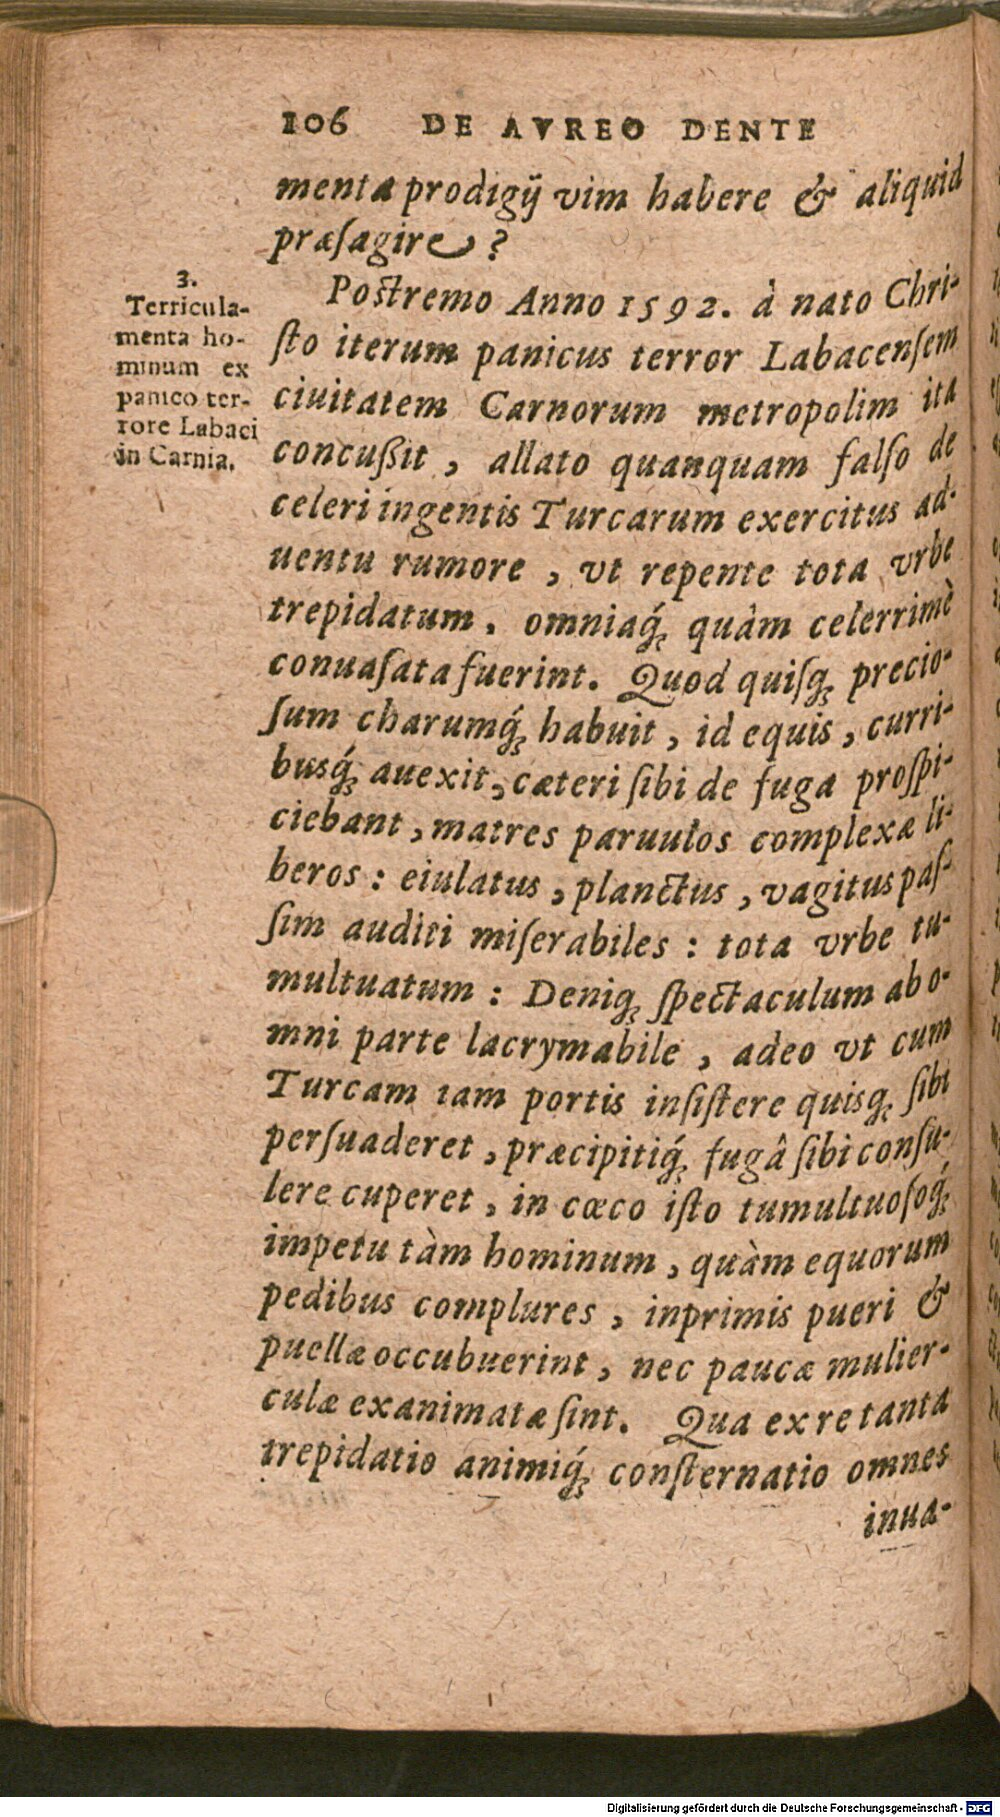 106 DE AVREO DENTE
menta prodigij vim habere & aliquid
præsagire?
3.
Terricula-
menta ho-
minum ex
panico ter-
rore Labaci
in Carnia.
Postremo Anno 1592. à nato Chri-
ſto iterum panicus terror Labacenſem
ciuitatem Carnorum metropolim ita
concußit, allato quanquam falſo de
celeri ingentis Turcarum exercitus ad-
uentu rumore, vt repente tota vrbe
trepidatum, omniaq́; quàm celerrimè
conuaſata fuerint. Quod quiſq; precio-
ſum charumq́; habuit, id equis, curri-
busq́; auexit, cæteri ſibi de fuga proſpi-
ciebant, matres paruulos complexæ li-
beros: eiulatus, planctus, vagitus paſ-
ſim auditi miſerabiles: tota vrbe tu-
multuatum: Deniq; ſpectaculum ab o-
mni parte lacrymabile, adeo vt cum
Turcam iam portis inſiſtere quisq; ſibi
perſuaderet, præcipitiq́; fugâ ſibi conſu-
lere cuperet, in cœco iſto tumultuoſoq́;
impetu tàm hominum, quàm equorum
pedibus complures, inprimis pueri &
puellæ occubuerint, nec paucæ mulier-
culæ exanimatæ ſint. Qua ex re tanta
trepidatio animiq́; conſternatio omnes
inua-
Digitalisierung gefördert durch die Deutsche Forschungsgemeinschaft - DFG